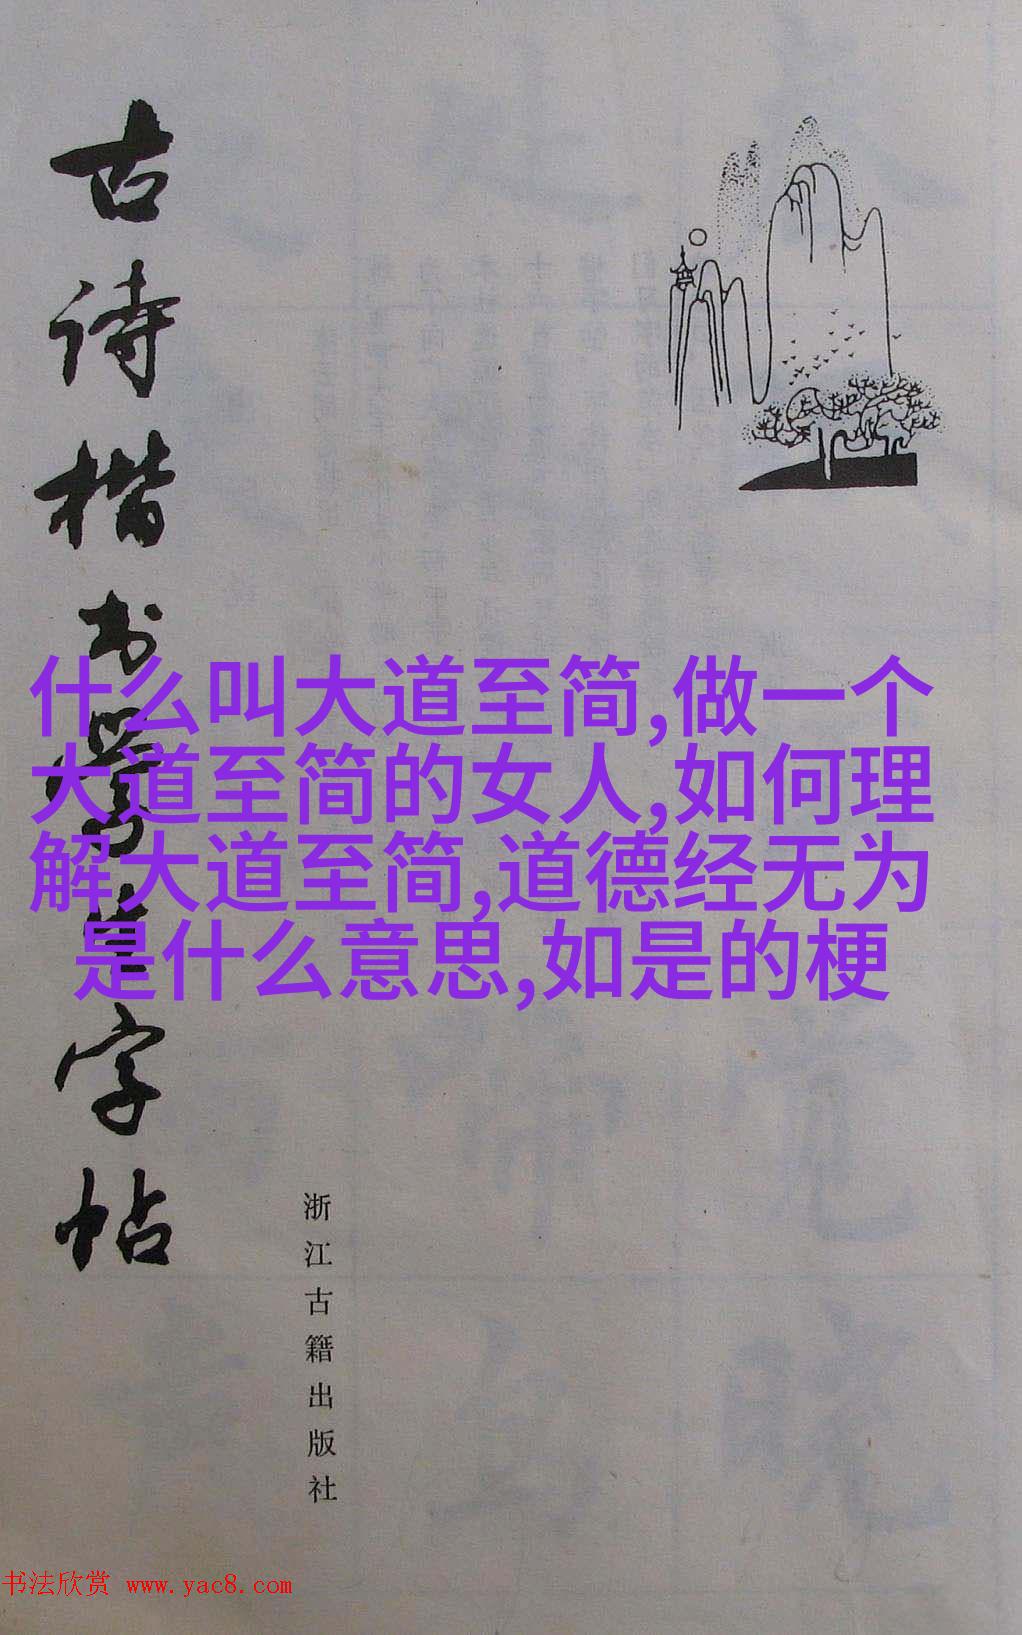 古诗楷书学生字帖
什么叫大道至简,做一个
大道至简的女人,如何理
解大道至简,道德经无为
是什么意思,如是的梗
浙江古籍出版社
书法欣赏 www.yac8.com